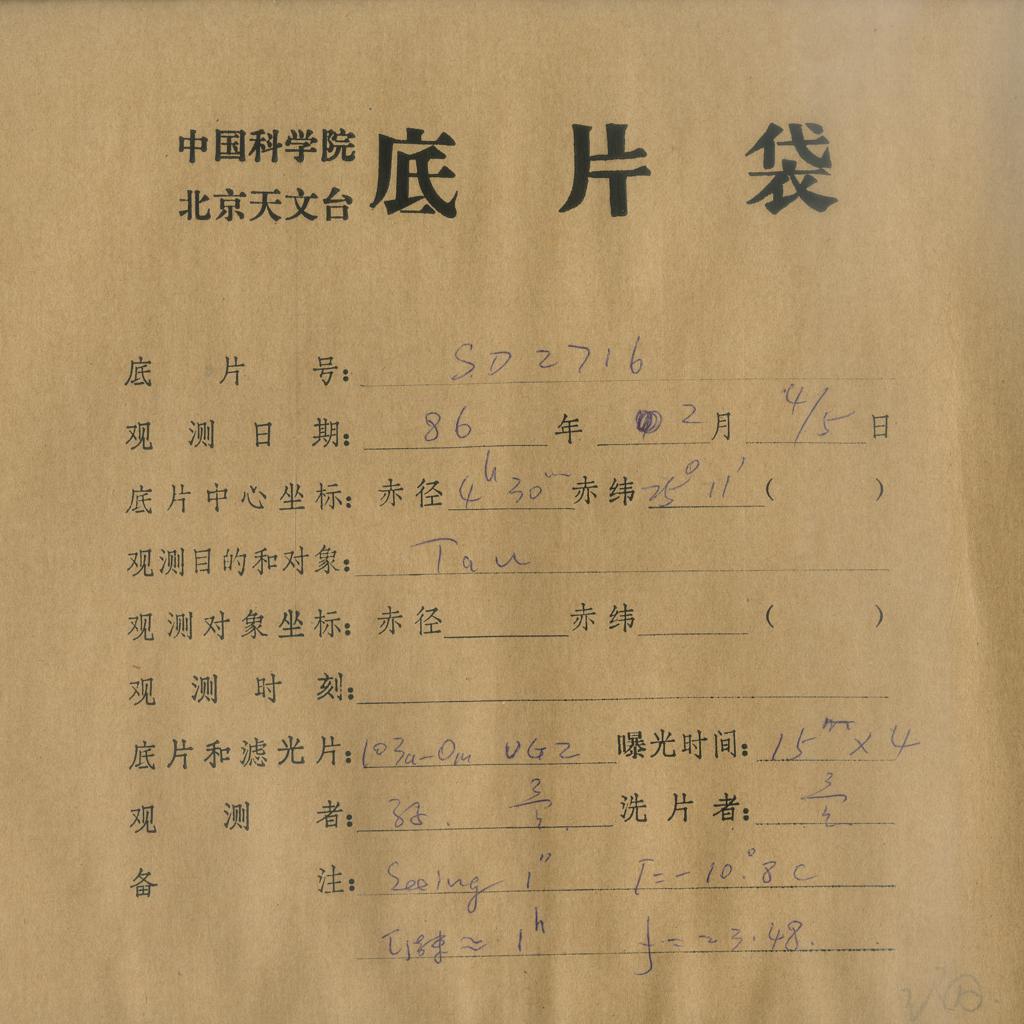 中国科学院
北京天文台
底片袋
底片号: SD2716
观测日期: 86 年 2 月 4/5 日
底片中心坐标: 赤径 4h 30m 赤纬 25° 11' ( )
观测目的和对象: Tau
观测对象坐标: 赤径 赤纬 ( )
观测时刻:
底片和滤光片: 103a-Om UG2 曝光时间: 15m × 4
观测者: 洗片者:
备注: Seeing 1" T=-10°.8 C
≈ 1h f = 23.48.